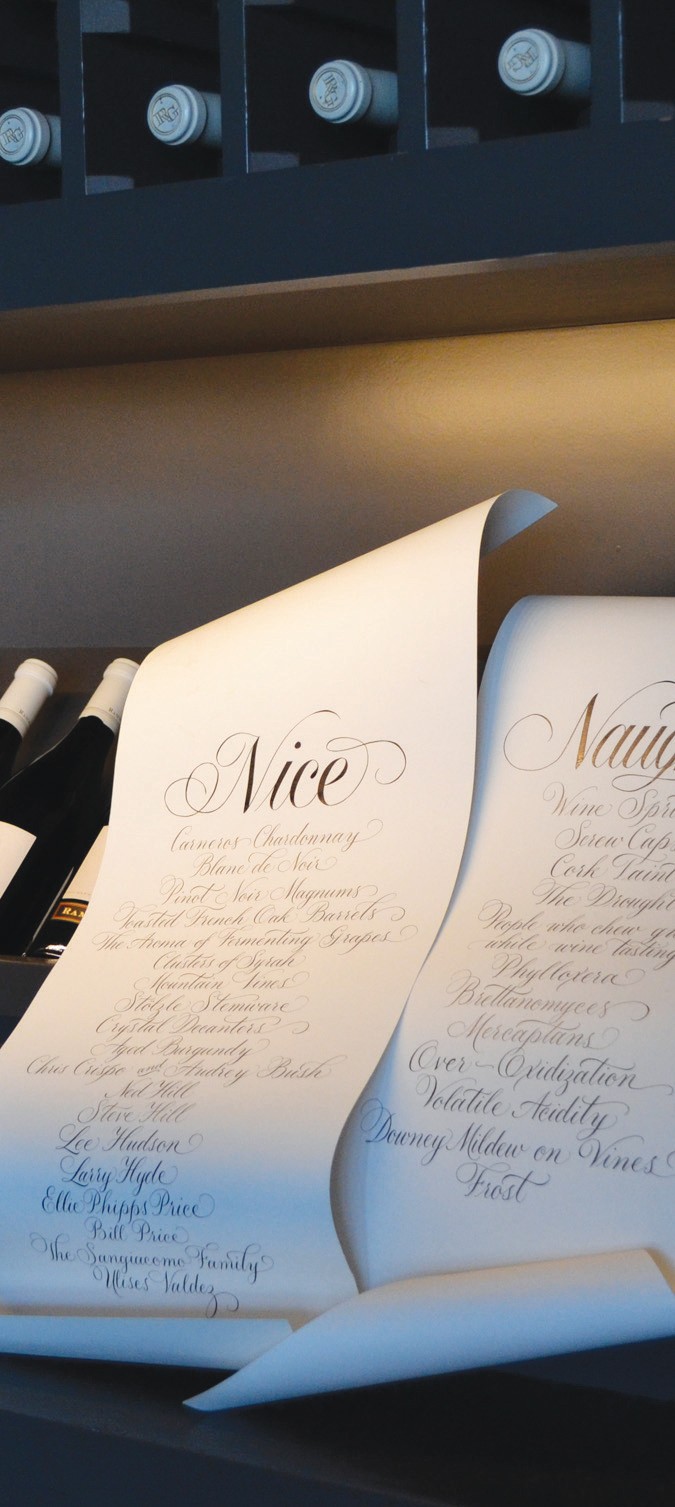 Nice
Carneros Chardonnay
Blanc de Noir
Pinot Noir Magnums
Toasted French Oak Barrels
The Aroma of Fermenting Grapes
Clusters of Syrah
Mountain Vines
Stolzle Stemware
Crystal Decanters
Aged Burgundy
Chris Crispo and Audrey Bush
Ned Hill
Steve Hill
Lee Hudson
Larry Hyde
Ellie Phipps Price
Bill Price
The Sangiacomo Family
Ulises Valdez
Naug
Wine Spr
Screw Caps
Cork Taint
The Drought
People who chew gu
while wine tasting
Phylloxera
Brettanomyces
Mercaptans
Over-Oxidization
Volatile Acidity
Downey Mildew on Vines
Frost
RAM